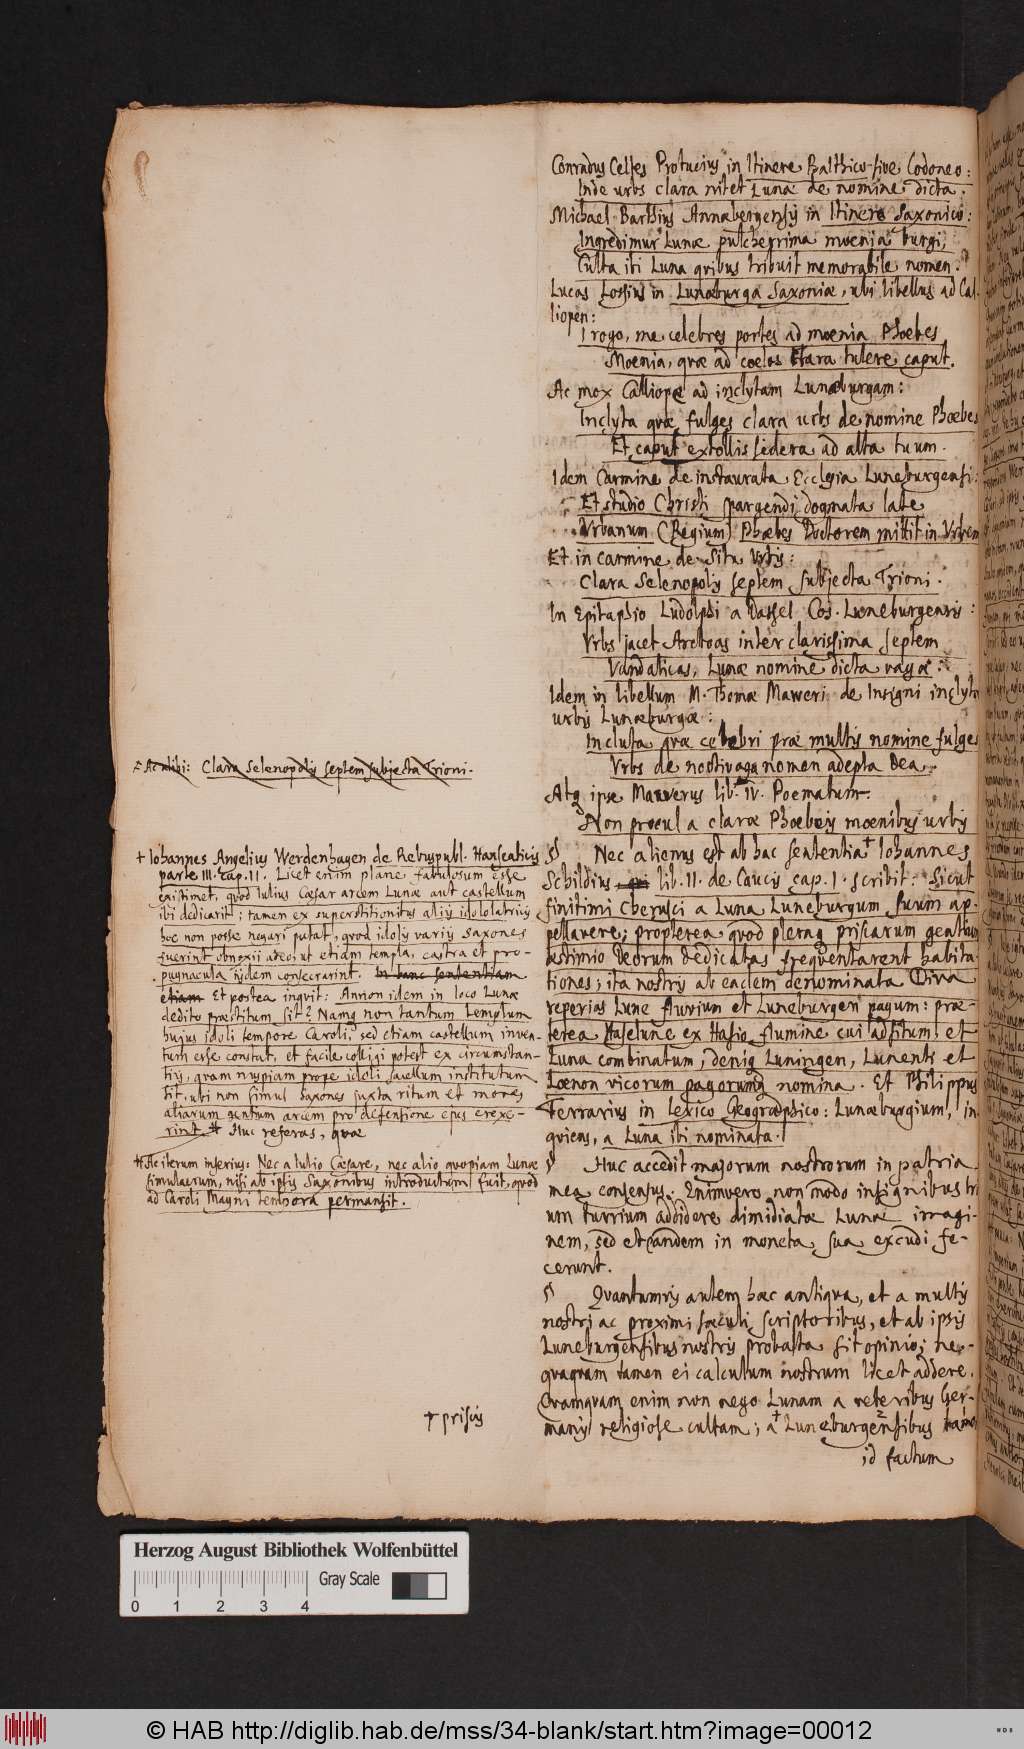 Conradus Celtes Protucius in Itinere Balthico sive Codoneo:
Inde urbs clara nitet Lunæ de nomine dicta.
Michael Barthius Annabergensis in Itinere Saxonico:
Ingredimur Lunæ pulcherrima moenia burgi,
Culta ibi Luna quibus tribuit memorabile nomen.
Lucas Lossius in Lunæburga Saxoniæ, ubi libellus ad Cal-
liopen:
I rogo, me celebres portes ad moenia Phoebes
Moenia, quæ ad coelos clara tulere caput.
Ac mox Calliope ad inclytam Lunæburgam:
Inclyta quæ fulges clara urbs de nomine Phoebes
Et caput extollis sidera ad alta tuum.
Idem Carmine de instaurata Ecclesia Luneburgensi:
Et studio Christi spargendi dogmata late
Urbanum (Regium) Phoebes Doctorem mittit in Urbem
Et in carmine de Situ Urbis:
Clara Selenopolis septem subjecta Trioni.
In Epitaphio Ludolphi a Dassel Cos. Luneburgensis:
Urbs jacet Arctoas inter clarissima septem
Vandalicas, Lunæ nomine dicta vagæ:
Idem in libellum M. Thomæ Maweri de Insigni inclytæ
urbis Lunæburgæ:
Incluta quæ celebri præ multis nomine fulges
Urbs de noctivaga nomen adepta Dea.
Atq ipse Mawerus lib. IV. Poematum:
Non procul a claræ Phoebeis moenibus urbis
Nec alienus est ab hac sententia † Iohannes
Schildius lib. II. de Caucis cap. I. scribit: Sicut
finitimi Cherusci a Luna Luneburgum suum ap-
pellavere; propterea quod pleraq priscarum gentium
æstimio Deorum dedicatas frequentarent habita-
tiones; ita nostris ab eadem denominata Diva
reperias Lune fluvium et Luneburgen pagum: præ-
terea Haselune ex Hasio flumine cui adsitum, et
Luna combinatum, deniq Luningen, Lunents et
Loenon vicorum pagorumq nomina. Et Philippus
Ferrarius in Lexico Geographico: Lunæburgium, in-
quiens, a Luna ibi nominata.
Huc accedit majorum nostrorum in patria
mea consensus. Enimvero non modo insignibus tri
um turrium addidere dimidiatæ Lunæ imagi-
nem, sed et eandem in moneta sua excudi fe-
cerunt.
Quantumvis autem hæc antiqua, et a multis
nostri ac proximi sæculi scriptoribus, et ab ipsis
Luneburgensibus nostris probata sit opinio; ne-
quaquam tamen ei calculum nostrum licet addere.
Quamquam enim non nego Lunam a veteribus Ger-
manis religiose cultam; a † Luneburgensibus tamen
id factum
Ac alibi: Clara Selenopolis septem subjecta Trioni.
† Iohannes Angelius Werdenhagen de Rebuspubl. Hanseaticis
parte III. cap. II. Licet enim plane fabulosum esse
existimet, quod Iulius Cæsar arcem Lunæ aut castellum
ibi dedicarit; tamen ex superstitionibus aliis idololatriis
hoc non posse negari putat, quod idolis variis Saxones
fuerint obnoxii adeo, ut etiam templa, castra et pro-
pugnacula iisdem consecrarint. In hanc sententiam
etiam Et postea inquit: Annon idem in loco Lunæ
dedito præstitum sit? Namq non tantum templum
hujus idoli tempore Caroli, sed etiam castellum inven-
tum esse constat, et facile colligi potest ex circumstan-
tiis, quam nuspiam prope idoli sacellum institutum
sit, ubi non simul Saxones juxta ritum et mores
aliarum gentium arcem pro defensione ejus erexe-
rint. # Huc referas, quæ
# Ac iterum inferius: Nec a Iulio Cæsare, nec alio quopiam Lunæ
simulacrum, nisi ab ipsis Saxonibus introductum fuit, quod
ad Caroli Magni tempora permansit.
† priscis
Herzog August Bibliothek Wolfenbüttel
Gray Scale
0 1 2 3 4
© HAB http://diglib.hab.de/mss/34-blank/start.htm?image=00012